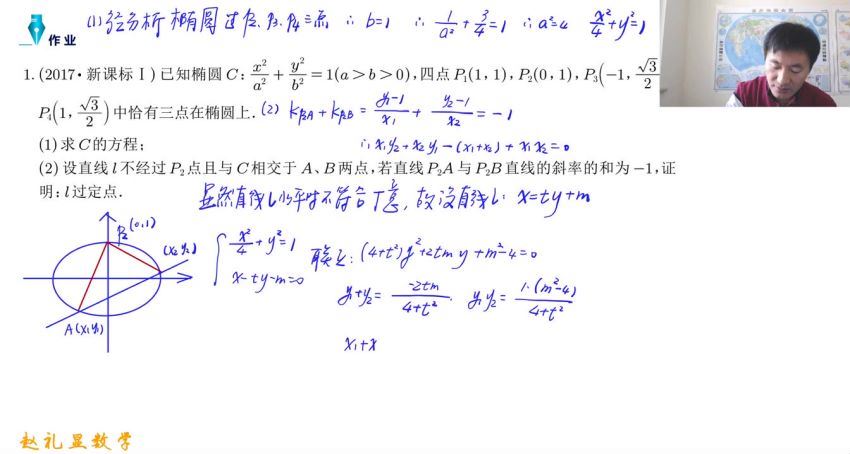 (1) 经分析 椭圆过 P₂、P₃、P₄三点 ∴ b=1 ∴ 1/a² + 3/4 = 1 ∴ a²=4 x²/4 + y² = 1
作业
1. (2017·新课标Ⅰ) 已知椭圆 C: x²/a² + y²/b² = 1(a>b>0), 四点 P₁(1,1), P₂(0,1), P₃(-1, √3/2
P₄(1, √3/2) 中恰有三点在椭圆上. (2) k_{P₂A} + k_{P₂B} = (y₁-1)/x₁ + (y₂-1)/x₂ = -1
(1) 求 C 的方程; ∴ x₁y₂ + x₂y₁ - (x₁+x₂) + x₁x₂ = 0
(2) 设直线 l 不经过 P₂ 点且与 C 相交于 A、B 两点, 若直线 P₂A 与 P₂B 直线的斜率的和为 -1, 证
明: l 过定点. 显然直线 l 水平时不符合题意, 故设直线 l: x=ty+m
P₂ (0,1)
(x₂ y₂)
A(x₁ y₁)
{ x²/4 + y² = 1
x-ty-m=0
联立: (4+t²)y²+2tmy+m²-4=0
y₁+y₂ = -2tm/(4+t²) . y₁y₂ = 1·(m²-4)/(4+t²)
x₁+x
赵礼显数学